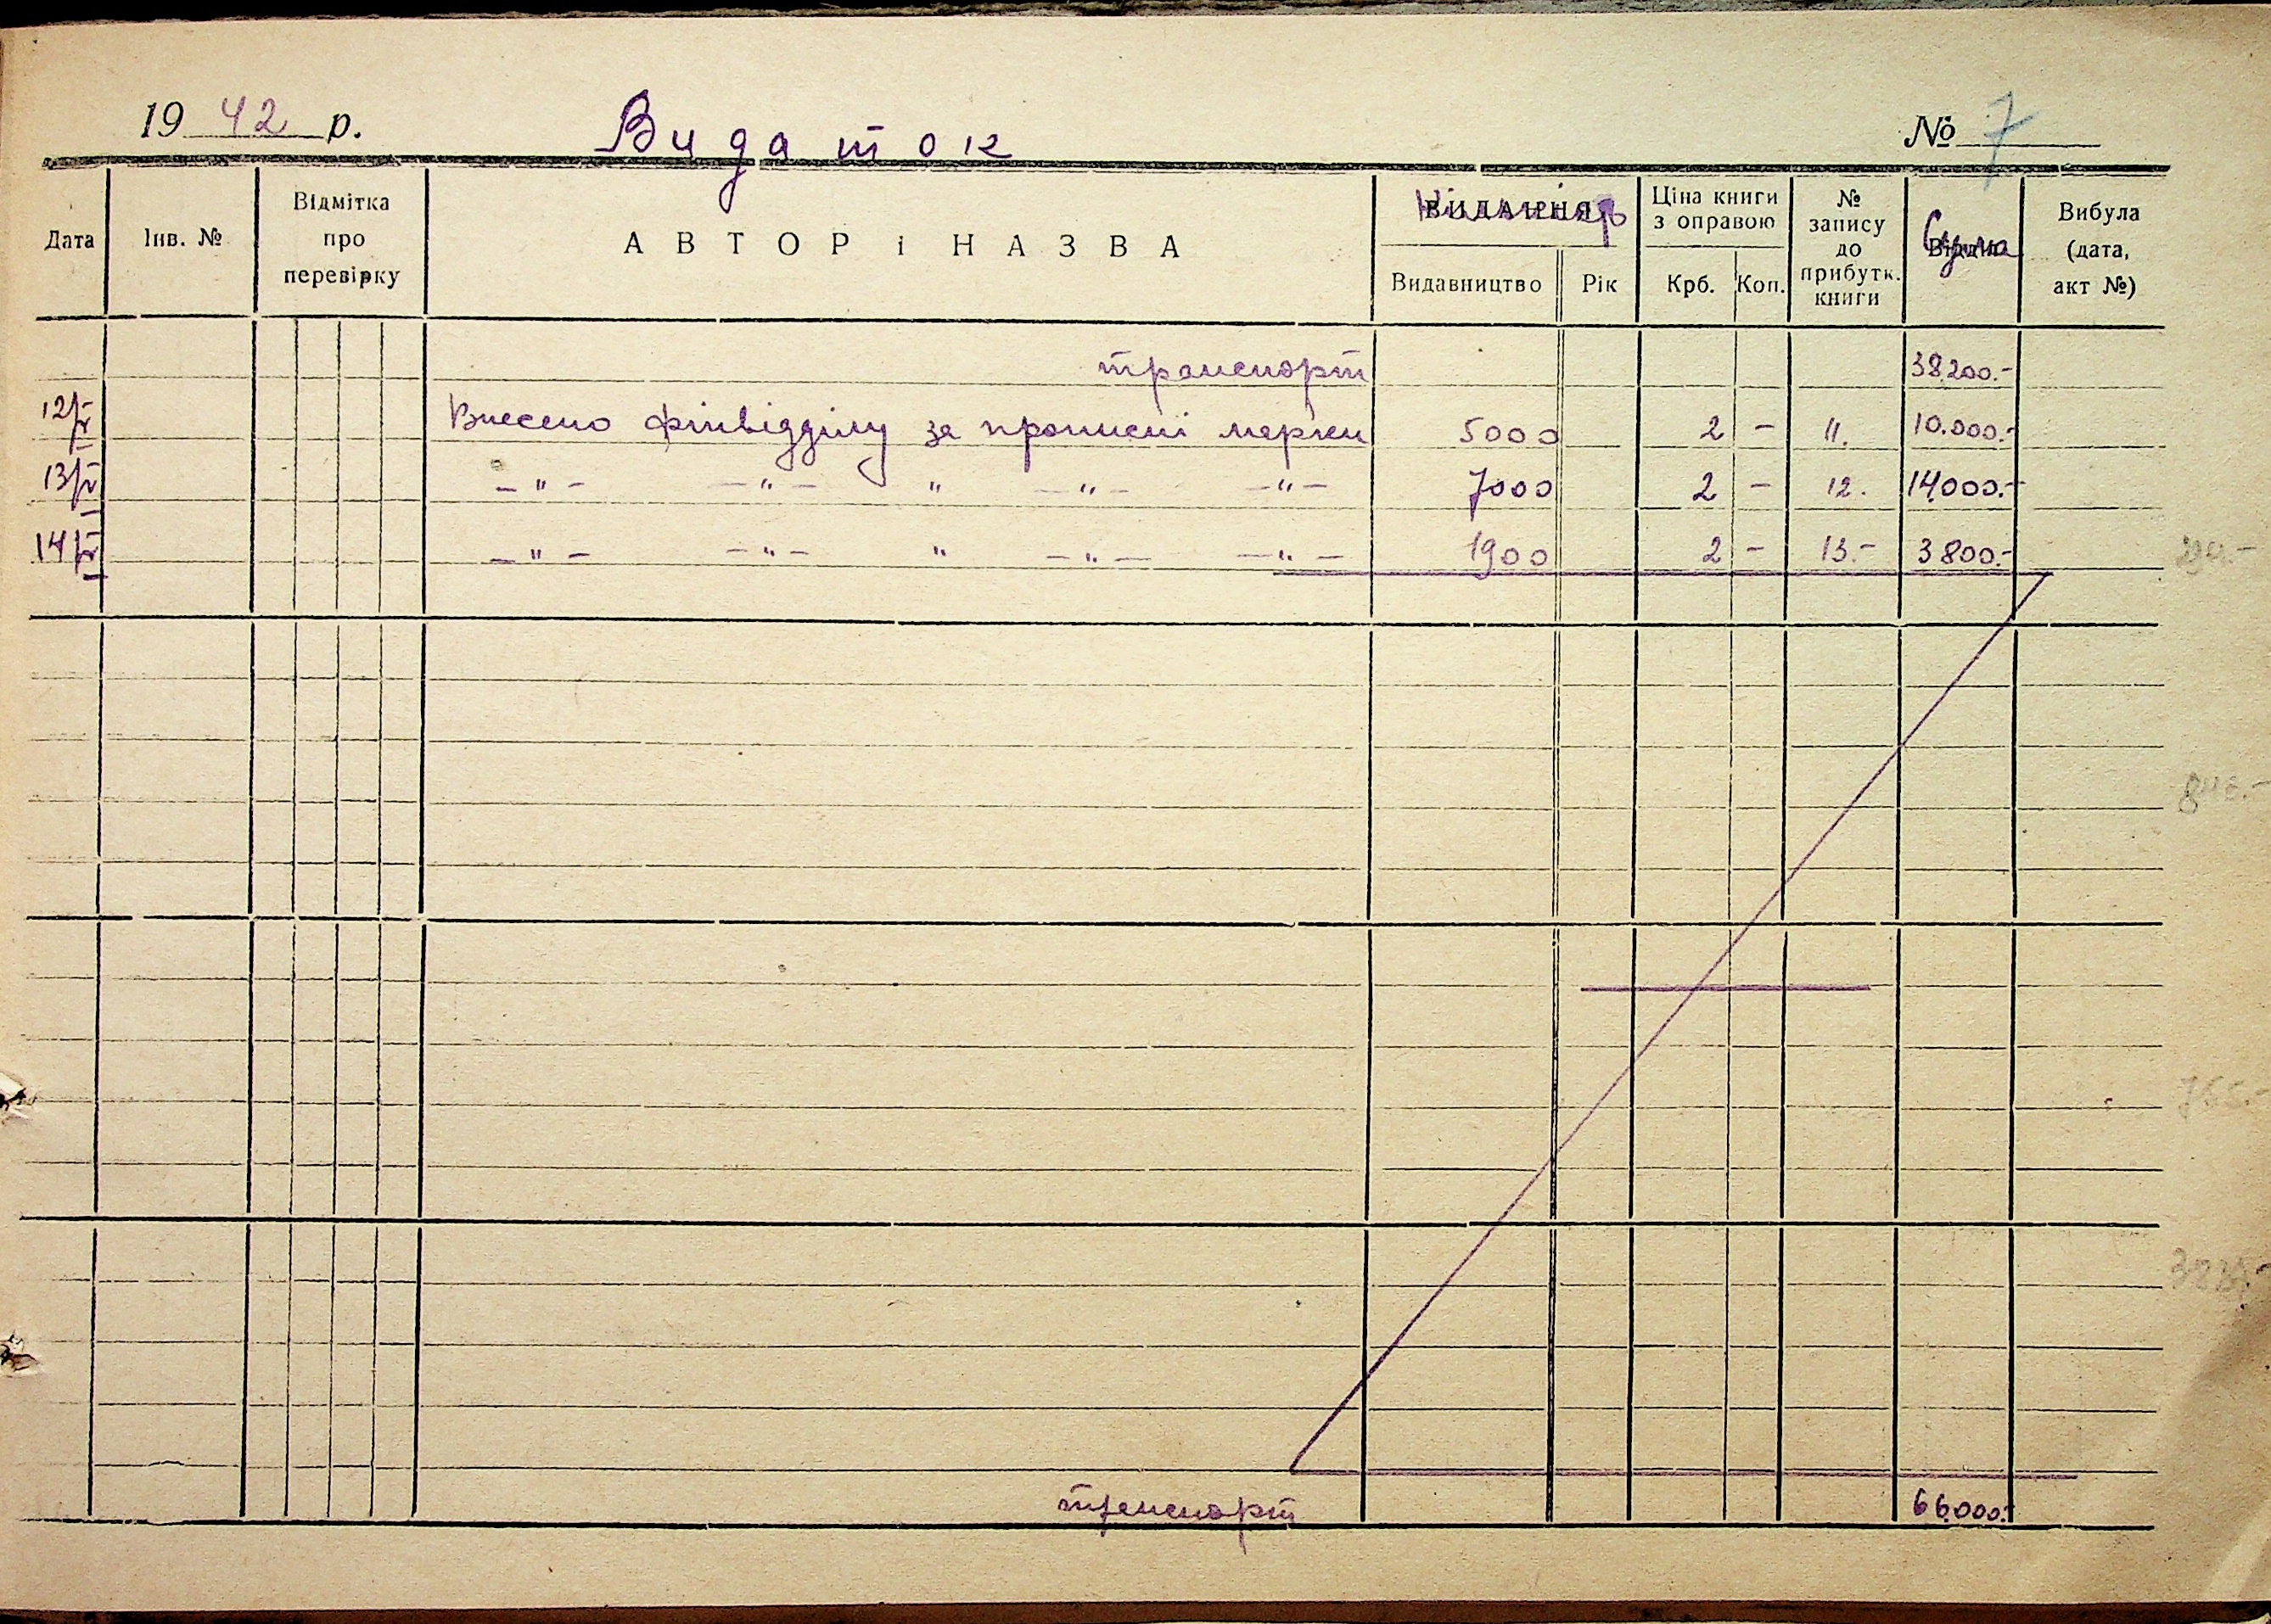 19 42 р. Видаток № 7
Дата Інв. № Відмітка про перевірку АВТОР і НАЗВА ВИДАННЯ Видавництво Рік Ціна книги з оправою Крб. Коп. № запису до прибутк. книги Сума Вибула (дата, акт №)
транспорт 38200.-
12/V Внесено фінвідділу за прописні марки 5000 2 - 11. 10.000.-
13/V -"- -"- " -"- -"- 7000 2 - 12. 14000.-
14/V -"- -"- " -"- -"- 1900 2 - 13.- 3800.-
транспорт 66000.-